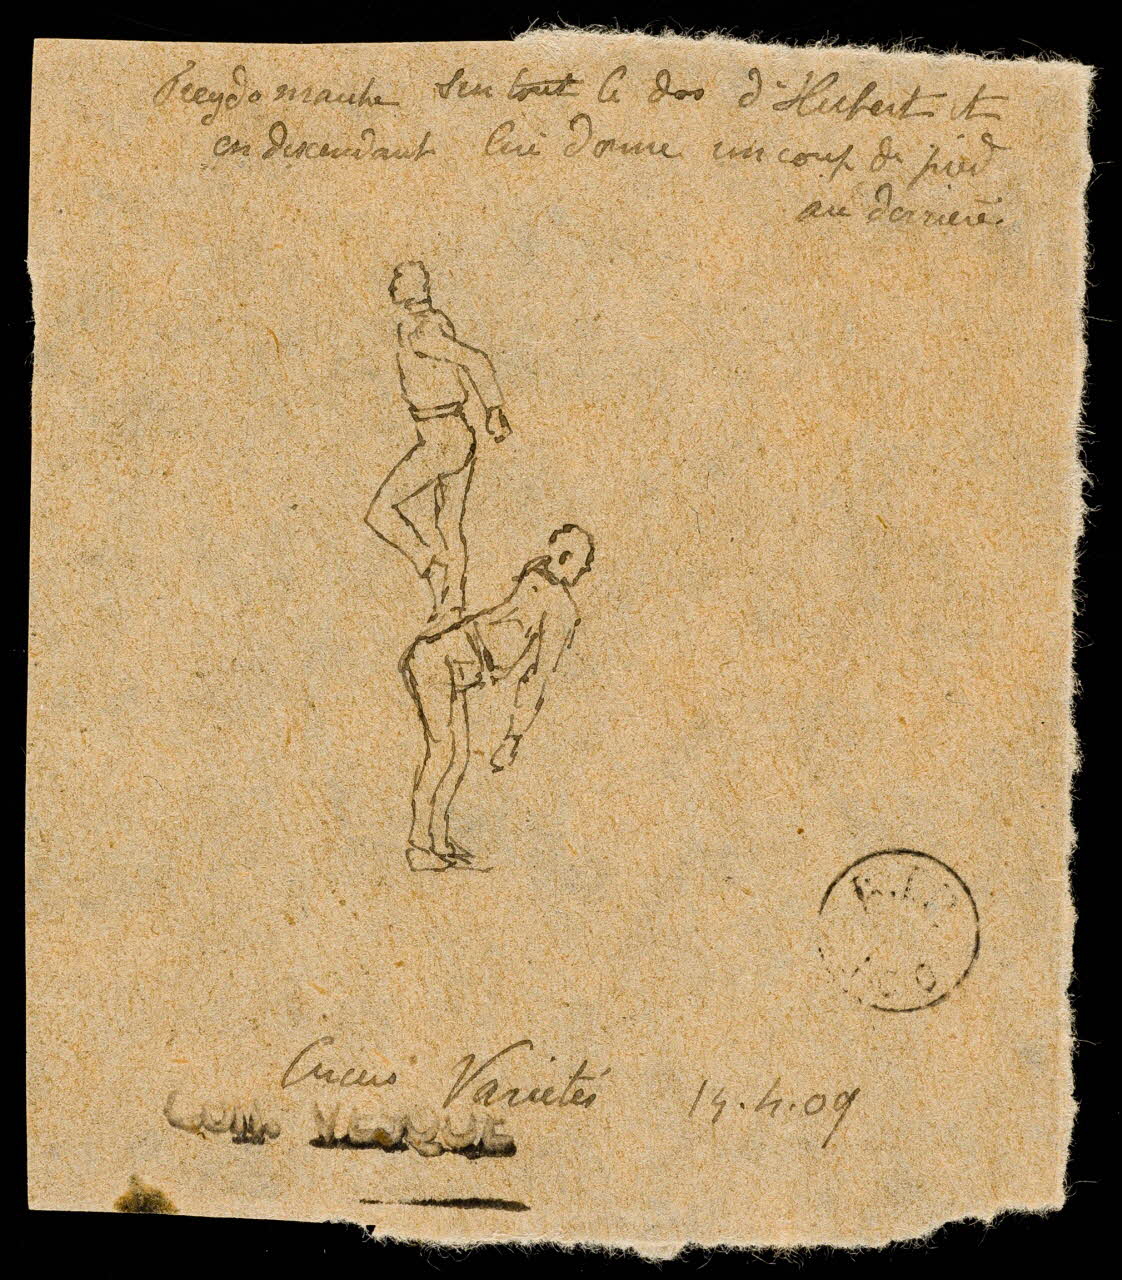 Freydo marche sur tout le dos d'Hubert et
en descendant lui donne un coup de pied
au derrière.
Circus Variétés 14.4.09
COLL. VESQUE